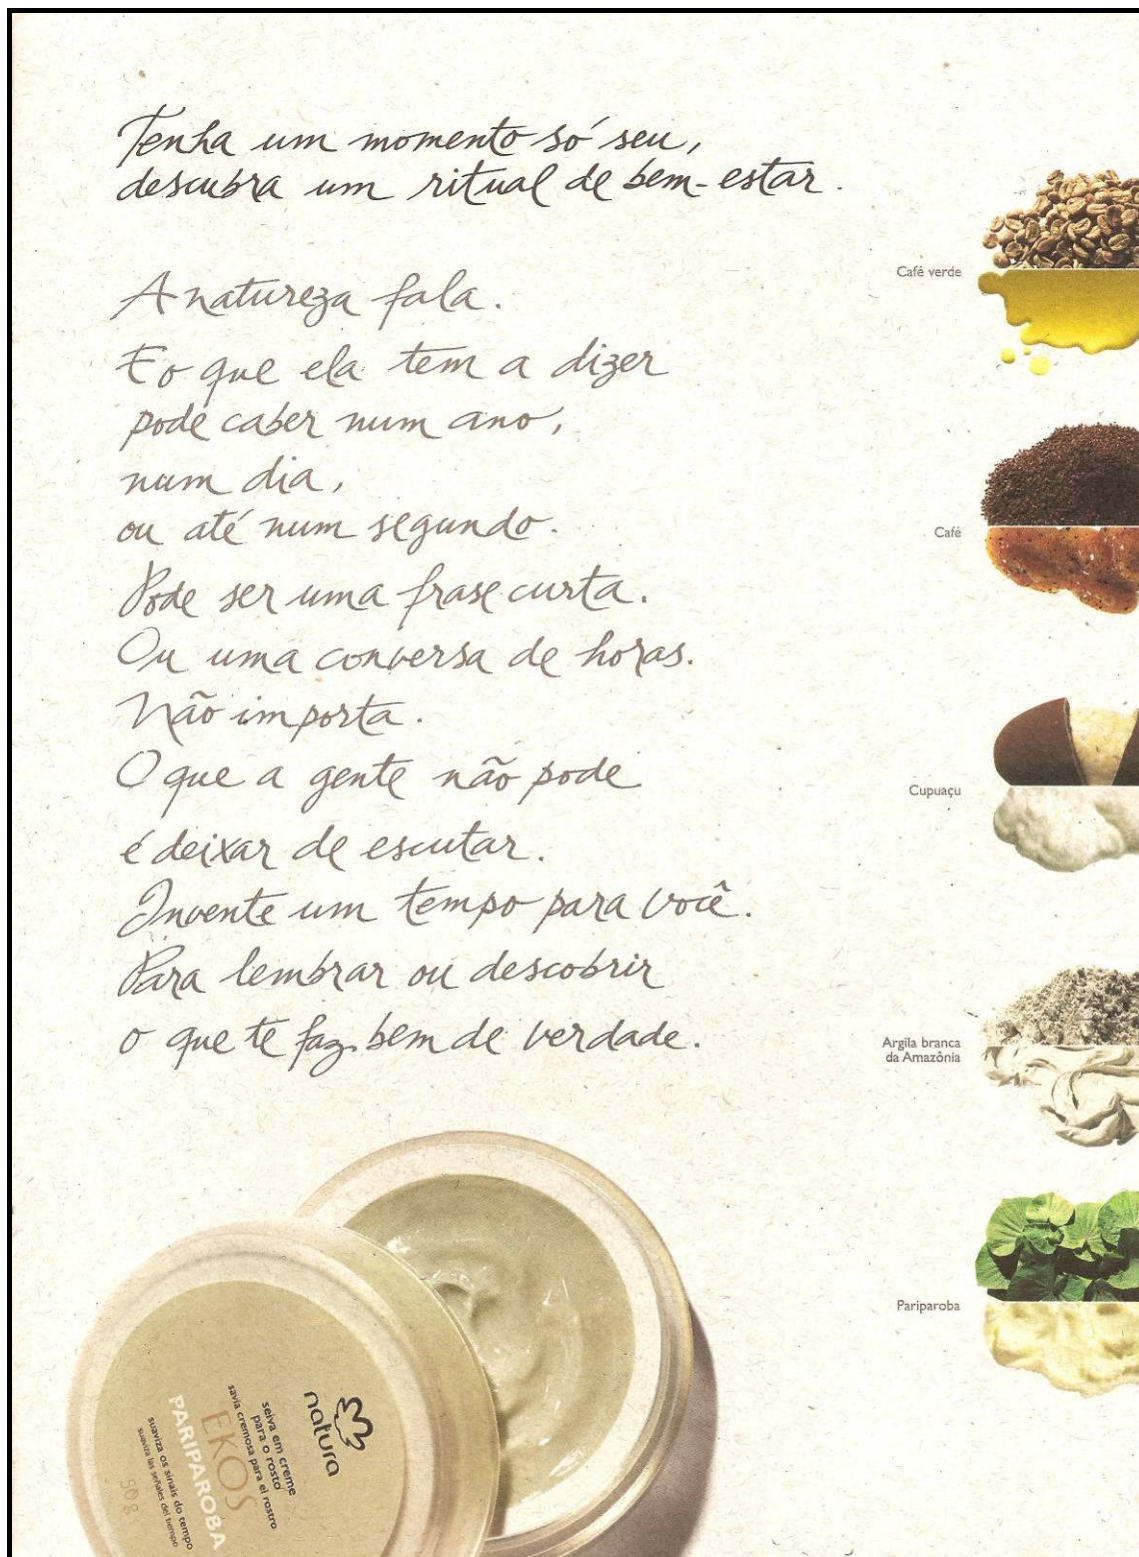 Tenha um momento só seu,
descubra um ritual de bem-estar.
A natureza fala.
E o que ela tem a dizer
pode caber num ano,
num dia,
ou até num segundo.
Pode ser uma frase curta.
Ou uma conversa de horas.
Não importa.
O que a gente não pode
é deixar de escutar.
Invente um tempo para você.
Para lembrar ou descobrir
o que te faz bem de verdade.
Café verde
Café
Cupuaçu
Argila branca
da Amazônia
Pariparoba
natura
seiva em creme
para o rosto
savia cremosa para el rostro
EKOS
PARIPAROBA
suaviza os sinais do tempo
suaviza las señales del tiempo
50g